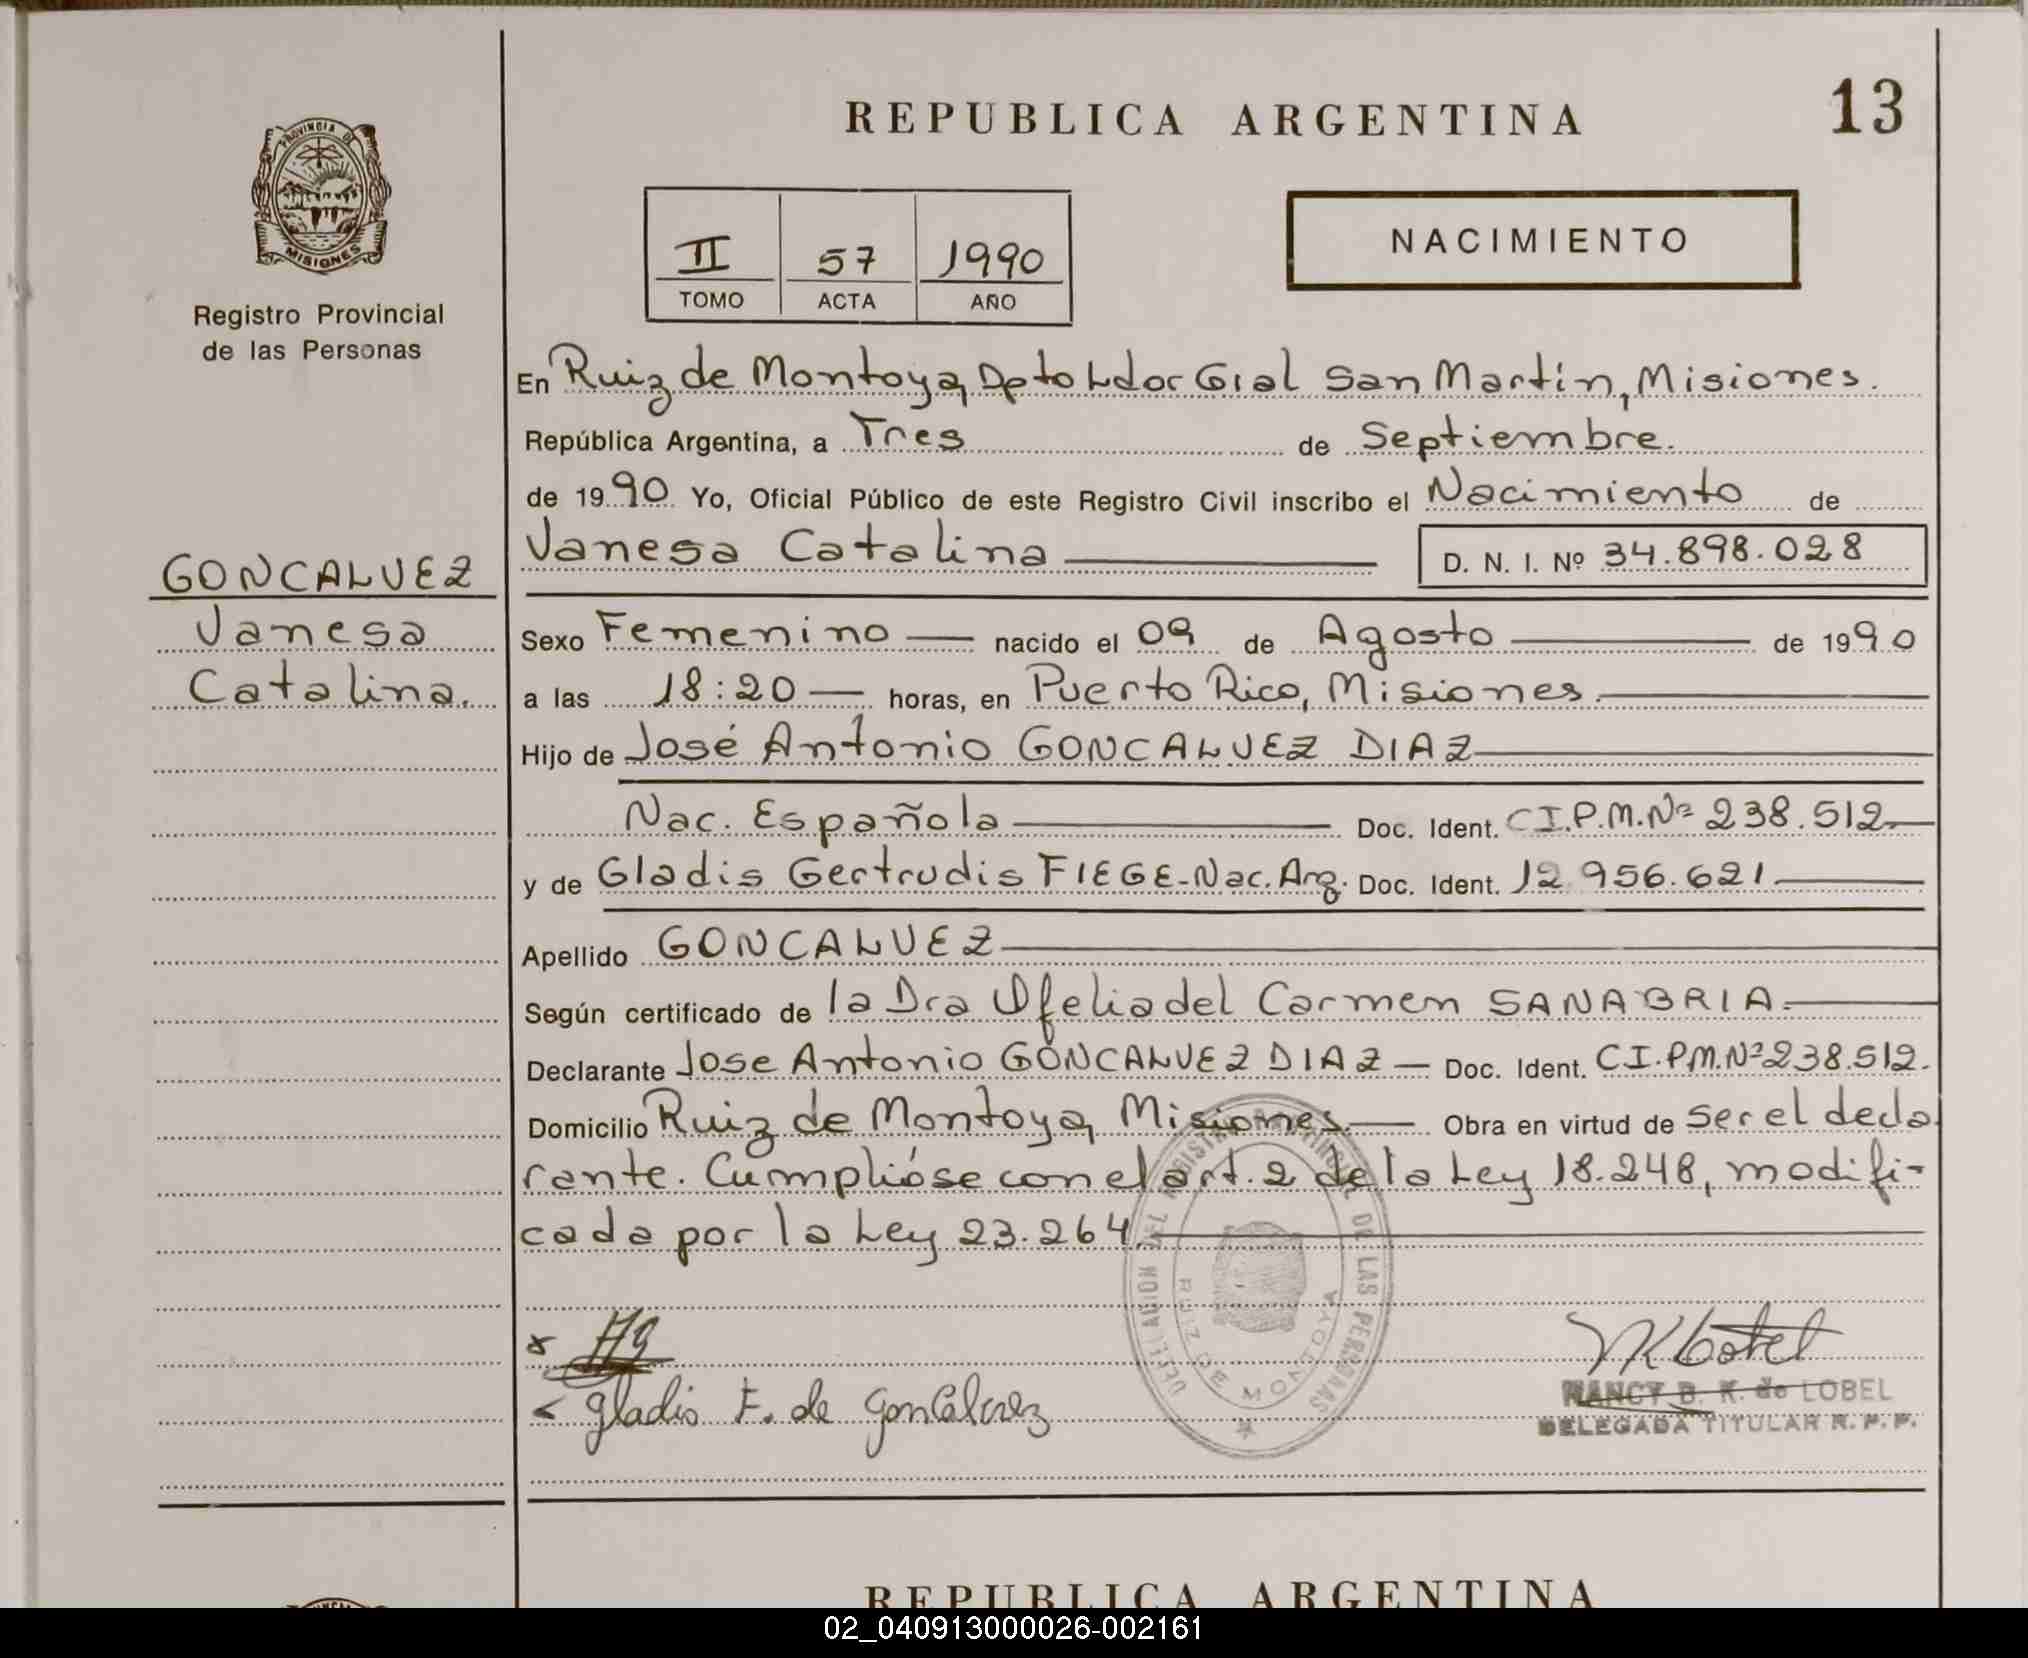 REPUBLICA ARGENTINA
13
PROVINCIA DE
MISIONES
Registro Provincial
de las Personas
II 57 1990
TOMO ACTA AÑO
NACIMIENTO
En Ruiz de Montoya, Dpto Ldor Gral San Martín, Misiones.
República Argentina, a Tres de Septiembre.
de 1990 Yo, Oficial Público de este Registro Civil inscribo el Nacimiento de
Vanesa Catalina
D. N. I. Nº 34.898.028
GONCALVEZ
Vanesa
Catalina.
Sexo Femenino nacido el 09 de Agosto de 1990
a las 18:20 horas, en Puerto Rico, Misiones.
Hijo de José Antonio GONCALVEZ DIAZ
Nac. Española Doc. Ident. C.I.P.M.Nº 238.512
y de Gladis Gertrudis FIEGE-Nac. Arg. Doc. Ident. 12.956.621.
Apellido GONCALVEZ
Según certificado de la Dra Ofelia del Carmen SANABRIA.
Declarante Jose Antonio GONCALVEZ DIAZ Doc. Ident. C.I.P.M.Nº 238.512.
Domicilio Ruiz de Montoya, Misiones. Obra en virtud de ser el decla
rante. Cumplióse con el art. 2 de la Ley 18.248, modifi-
cada por la Ley 23.264.
DEL REGISTRO PROVINCIAL DE LAS PERSONAS
RUIZ DE MONTOYA
Gladis F. de Goncalvez
NANCY B. K. de LOBEL
DELEGADA TITULAR R. P. P.
REPUBLICA ARGENTINA
02_040913000026-002161